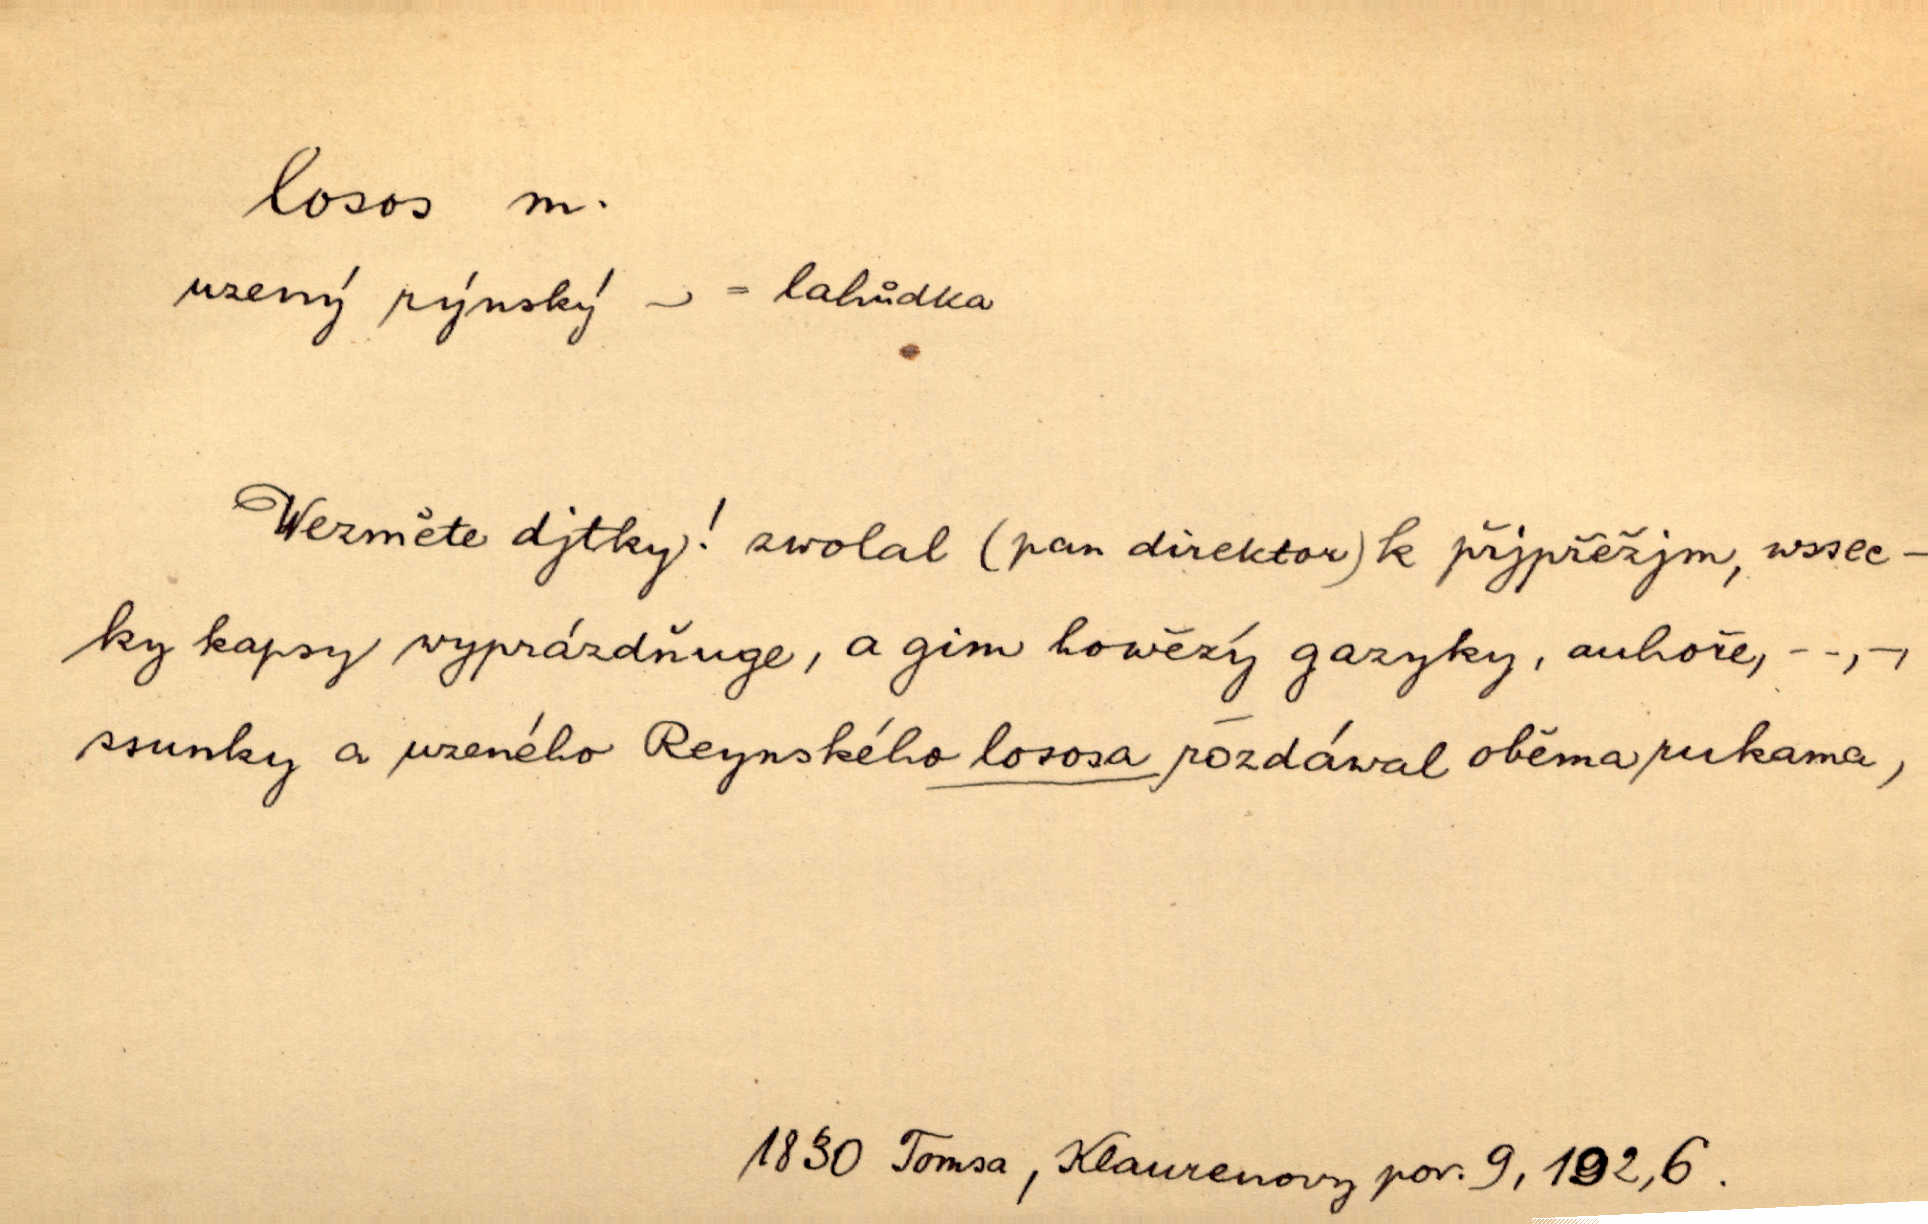 losos m.
uzený rýnský ~ = lahůdka
Wezměte djtky! zwolal (pan direktor) k přjpřežjm, wssec-
ky kapsy wyprázdňuge, a gim howězý gazyky, auhoře, --, -,
ssunky a uzeného Reynského lososa rozdáwal oběma rukama,
1830 Tomsa, Klaurenovy pov. 9, 192,6.